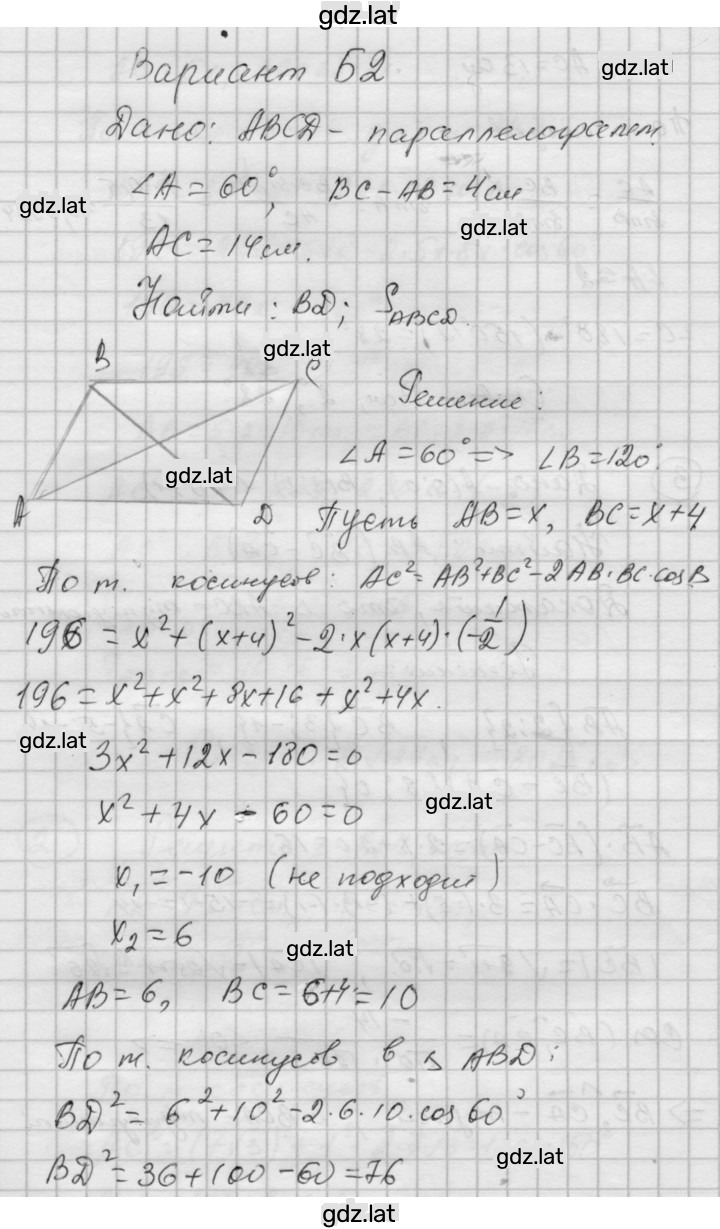 gdz.lat
Вариант Б2
gdz.lat
Дано: ABCD - параллелограмм.
∠A = 60°, BC - AB = 4 см
gdz.lat
gdz.lat
AC = 14 см.
Найти: BD; S_ABCD.
gdz.lat
B C
Решение:
∠A = 60° => ∠B = 120°.
gdz.lat
A D
Пусть AB = x, BC = x + 4.
По т. косинусов: AC² = AB² + BC² - 2 AB · BC · cos B
196 = x² + (x+4)² - 2 · x (x+4) · (-1/2)
196 = x² + x² + 8x + 16 + x² + 4x.
gdz.lat
3x² + 12x - 180 = 0
gdz.lat
x² + 4x - 60 = 0
x₁ = -10 (не подходит)
x₂ = 6
gdz.lat
AB = 6, BC = 6+4 = 10
По т. косинусов в △ ABD:
BD² = 6² + 10² - 2 · 6 · 10 · cos 60°
gdz.lat
BD² = 36 + 100 - 60 = 76
gdz.lat